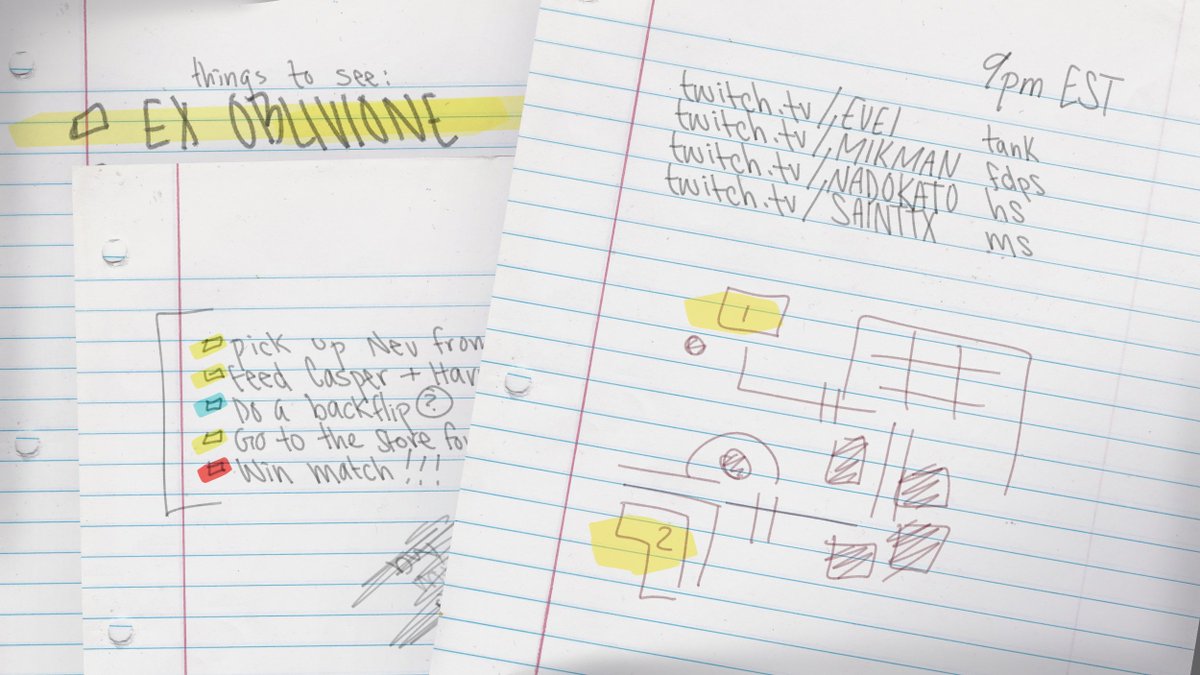 things to see:
EX OBLIVIONE
pick up Nev from
Feed Casper + Har
Do a backflip ?
Go to the store for
Win match!!!
9pm EST
twitch.tv/EVEI tank
twitch.tv/MIKMAN fdps
twitch.tv/NADOKATO hs
twitch.tv/SAINTTX ms
1
2